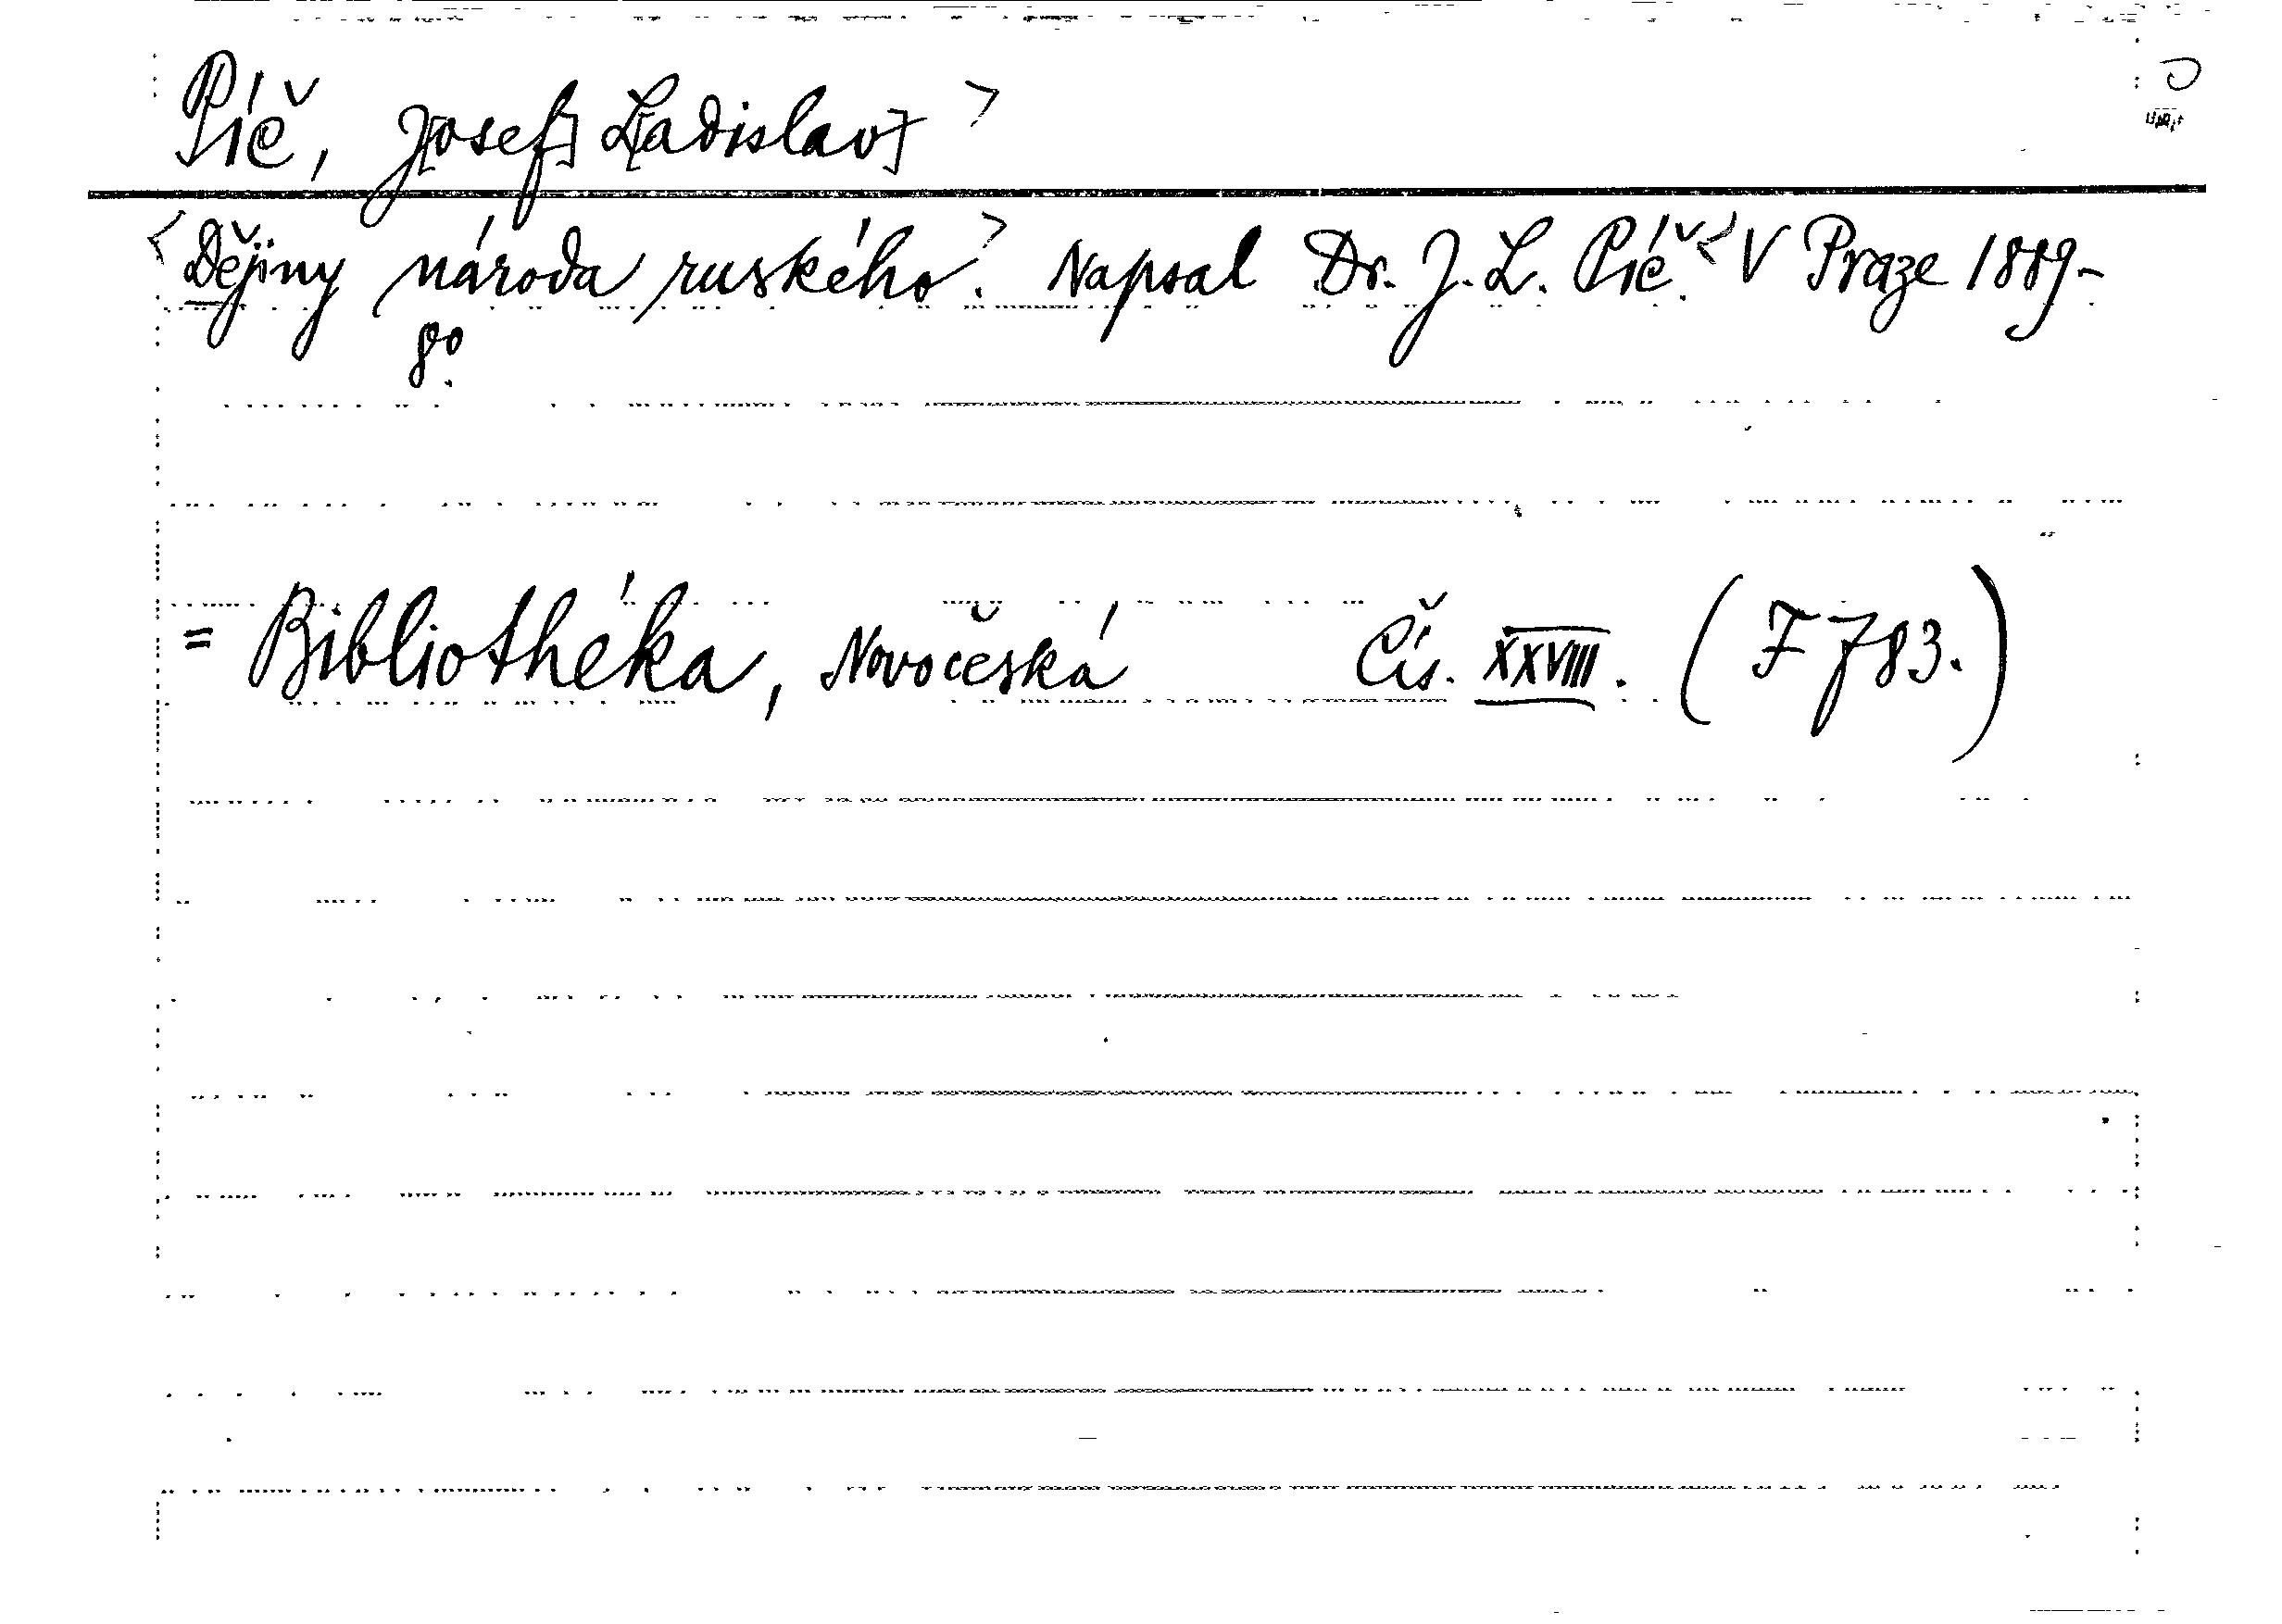 Píč, J[osef] L[adislav] >
<Dějiny národa ruského.> Napsal Dr. J. L. Píč. < V Praze 1889-
8o.
= Bibliothéka, Novočeská Čís. XXVIII. (F 783.)